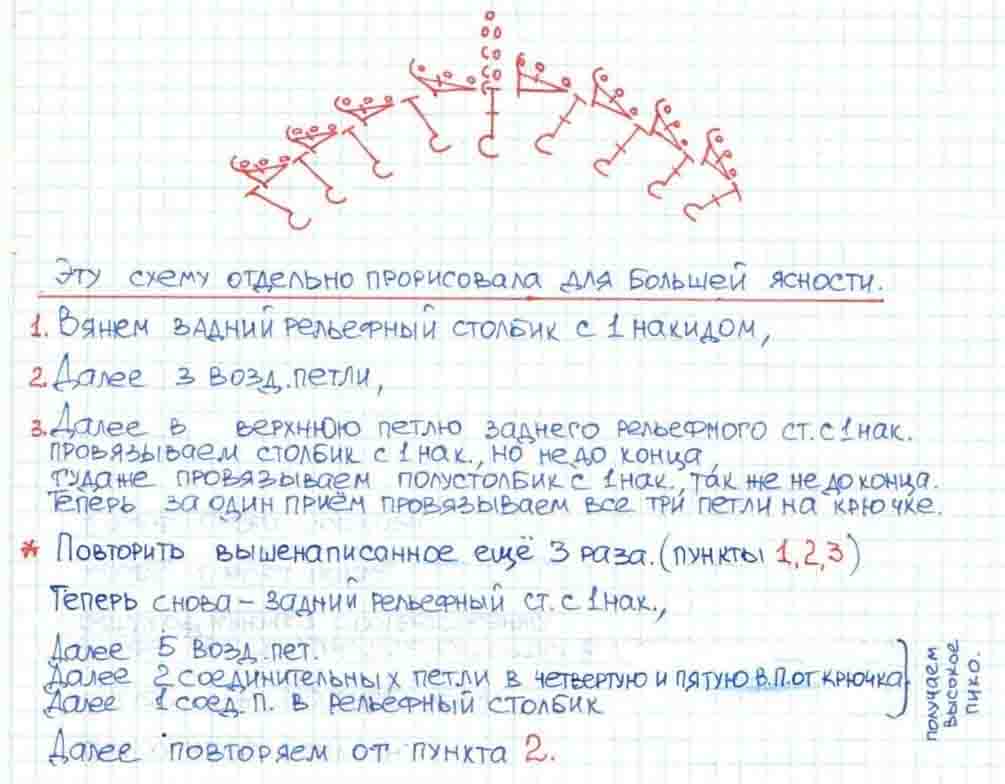 Эту схему отдельно прорисовала для большей ясности.
1. Вяжем задний рельефный столбик с 1 накидом,
2. Далее 3 возд. петли,
3. Далее в верхнюю петлю заднего рельефного ст. с 1 нак.
провязываем столбик с 1 нак., но не до конца,
тудаже провязываем полустолбик с 1 нак., так же не до конца.
Теперь за один приём провязываем все три петли на крючке.
* Повторить вышенаписанное ещё 3 раза. (пункты 1,2,3)
Теперь снова – задний рельефный ст. с 1 нак.,
Далее 5 возд. пет.
Далее 2 соединительных петли в четвертую и пятую в.п. от крючка
Далее 1 соед. п. в рельефный столбик
получаем
высокое
пико.
Далее повторяем от пункта 2.